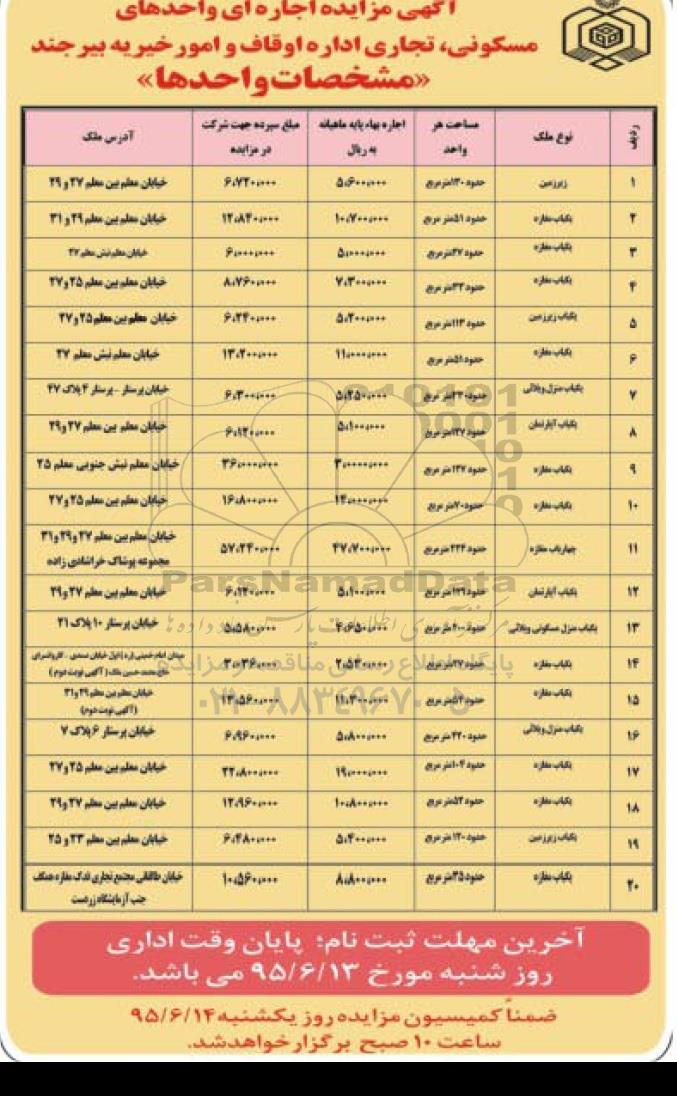 آگهی مزایده اجاره ای واحدهای
مسکونی، تجاری اداره اوقاف و امور خیریه بیرجند
«مشخصات واحدها»
ردیف نوع ملک مساحت هر واحد اجاره بهاء پایه ماهیانه به ریال مبلغ سپرده جهت شرکت در مزایده آدرس ملک
۱ زیرزمین حدود ۱۳۰متر مربع ۵،۶۰۰،۰۰۰ ۶،۷۲۰،۰۰۰ خیابان معلم بین معلم ۲۷ و ۲۹
۲ یکباب مغازه حدود ۵۱متر مربع ۱۰،۷۰۰،۰۰۰ ۱۲،۸۴۰،۰۰۰ خیابان معلم بین معلم ۲۹ و ۳۱
۳ یکباب مغازه حدود ۲۷متر مربع ۵،۰۰۰،۰۰۰ ۶،۰۰۰،۰۰۰ خیابان معلم نبش معلم ۲۷
۴ یکباب مغازه حدود ۳۳متر مربع ۷،۳۰۰،۰۰۰ ۸،۷۶۰،۰۰۰ خیابان معلم بین معلم ۲۵ و ۲۷
۵ یکباب زیرزمین حدود ۱۱۳متر مربع ۵،۲۰۰،۰۰۰ ۶،۲۴۰،۰۰۰ خیابان معلم بین معلم ۲۵ و ۲۷
۶ یکباب مغازه حدود ۵۱متر مربع ۱۱،۰۰۰،۰۰۰ ۱۳،۲۰۰،۰۰۰ خیابان معلم نبش معلم ۲۷
۷ یکباب منزل ویلائی متر مربع ۵،۲۵۰،۰۰۰ ۶،۳۰۰،۰۰۰ خیابان پرستار - پرستار ۴ پلاک ۲۷
۸ یکباب آپارتمان حدود ۱۲۷متر مربع ۵،۱۰۰،۰۰۰ ۶،۱۲۰،۰۰۰ خیابان معلم بین معلم ۲۷ و ۲۹
۹ یکباب مغازه حدود ۱۳۷متر مربع ۳۰،۰۰۰،۰۰۰ ۳۶،۰۰۰،۰۰۰ خیابان معلم نبش جنوبی معلم ۲۵
۱۰ یکباب مغازه حدود ۷۰متر مربع ۱۴،۰۰۰،۰۰۰ ۱۶،۸۰۰،۰۰۰ خیابان معلم بین معلم ۲۵ و ۲۷
۱۱ چهارباب مغازه حدود ۲۳۴متر مربع ۴۷،۷۰۰،۰۰۰ ۵۷،۲۴۰،۰۰۰ خیابان معلم بین معلم ۲۷ و ۲۹ و ۳۱ مجموعه پوشاک خراشادی زاده
۱۲ یکباب آپارتمان حدود ۱۲۹متر مربع ۵،۱۰۰،۰۰۰ ۶،۱۲۰،۰۰۰ خیابان معلم بین معلم ۲۷ و ۲۹
۱۳ یکباب منزل مسکونی ویلائی حدود ۲۰۰متر مربع ۴،۶۵۰،۰۰۰ ۵،۵۸۰،۰۰۰ خیابان پرستار ۱۰ پلاک ۲۱
۱۴ یکباب مغازه حدود ۲۷متر مربع ۲،۵۳۰،۰۰۰ ۳،۰۳۶،۰۰۰ میدان امام خمینی (ره) اول خیابان صمدی - کاروانسرای حاج محمد حسین ملک ( آگهی نوبت دوم )
۱۵ یکباب مغازه حدود ۵۴متر مربع ۱۱،۳۰۰،۰۰۰ ۱۳،۵۶۰،۰۰۰ خیابان معلم بین معلم ۲۹ و ۳۱ (آگهی نوبت دوم)
۱۶ یکباب منزل ویلائی حدود ۲۲۰متر مربع ۵،۸۰۰،۰۰۰ ۶،۹۶۰،۰۰۰ خیابان پرستار ۶ پلاک ۷
۱۷ یکباب مغازه حدود ۱۰۴متر مربع ۱۹،۰۰۰،۰۰۰ ۲۲،۸۰۰،۰۰۰ خیابان معلم بین معلم ۲۵ و ۲۷
۱۸ یکباب مغازه حدود ۵۲متر مربع ۱۰،۸۰۰،۰۰۰ ۱۲،۹۶۰،۰۰۰ خیابان معلم بین معلم ۲۷ و ۲۹
۱۹ یکباب زیرزمین حدود ۱۲۰متر مربع ۵،۴۰۰،۰۰۰ ۶،۴۸۰،۰۰۰ خیابان معلم بین معلم ۲۳ و ۲۵
۲۰ یکباب مغازه حدود ۳۵متر مربع ۸،۸۰۰،۰۰۰ ۱۰،۵۶۰،۰۰۰ خیابان طالقانی مجتمع تجاری فدک مغازه همکف جنب آزمایشگاه زردست
ParsNamadData
پایگاه اطلاع رسانی مناقصه و مزایده
۰۲۱-۸۸۳۴۹۶۷۰-۵
آخرین مهلت ثبت نام: پایان وقت اداری
روز شنبه مورخ ۹۵/۶/۱۳ می باشد.
ضمناً کمیسیون مزایده روز یکشنبه ۹۵/۶/۱۴
ساعت ۱۰ صبح برگزار خواهد شد.